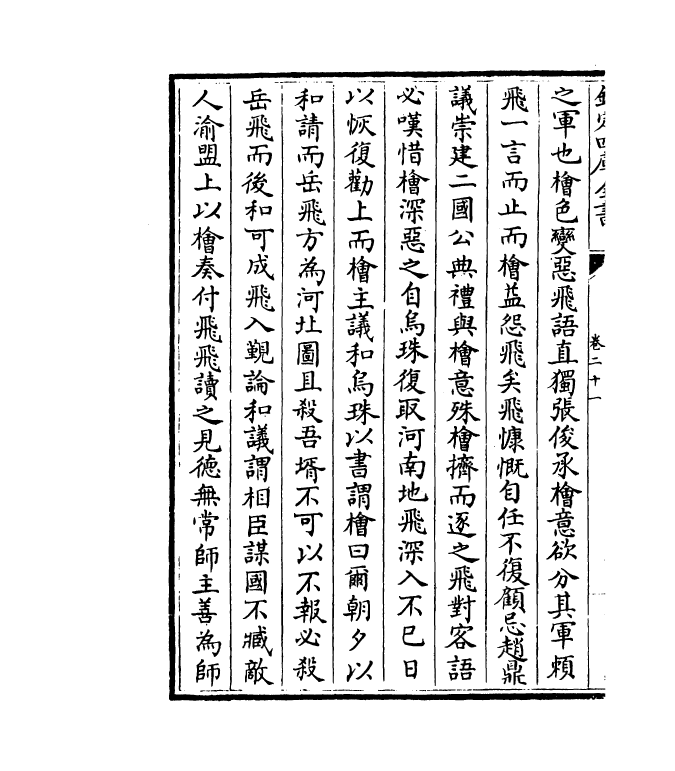 欽定四庫全書
卷二十一
之軍也檜色變惡飛語直獨張俊承檜意欲分其軍頼
飛一言而止而檜益怨飛矣飛慷慨自任不復顧忌趙鼎
議崇建二國公典禮與檜意殊檜擠而逐之飛對客語
必嘆惜檜深惡之自烏珠復取河南地飛深入不已日
以恢復勸上而檜主議和烏珠以書謂檜曰爾朝夕以
和請而岳飛方為河北圖且殺吾壻不可以不報必殺
岳飛而後和可成飛入覲論和議謂相臣謀國不臧敵
人渝盟上以檜奏付飛飛讀之見徳無常師主善為師